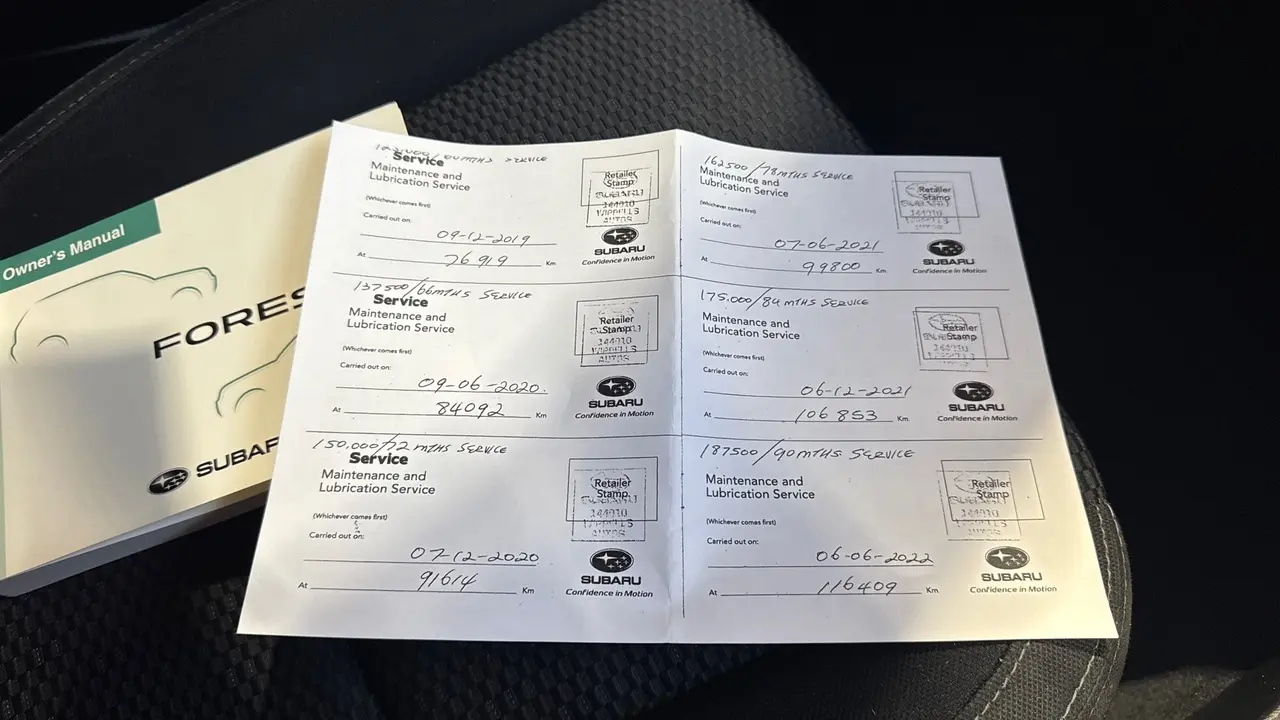 Owner's Manual
FORES
SUBAR
125.000/60 MTHS SERVICE
Service
Maintenance and
Lubrication Service
(Whichever comes first)
Carried out on:
09-12-2019
At 76919 Km
Retailer
Stamp
SUBARU
144910
AUTOS
SUBARU
Confidence in Motion
137500/66MTHS SERVICE
Service
Maintenance and
Lubrication Service
(Whichever comes first)
Carried out on:
09-06-2020.
At 84092 Km
Retailer
Stamp
144910
AUTOS
SUBARU
Confidence in Motion
150.000/72 MTHS SERVICE
Service
Maintenance and
Lubrication Service
(Whichever comes first)
Carried out on:
07-12-2020
At 91614 Km
Retailer
Stamp
SUBARU
144910
AUTOS
SUBARU
Confidence in Motion
162500/78MTHS SERVICE
Maintenance and
Lubrication Service
(Whichever comes first)
Carried out on:
07-06-2021
At 99800 Km
Retailer
Stamp
SUBARU
144910
AUTOS
SUBARU
Confidence in Motion
175.000/84MTHS SERVICE
Maintenance and
Lubrication Service
(Whichever comes first)
Carried out on:
06-12-2021
At 106853 Km
Retailer
Stamp
144910
AUTOS
SUBARU
Confidence in Motion
187500/90MTHS SERVICE
Maintenance and
Lubrication Service
(Whichever comes first)
Carried out on:
06-06-2022
At 116409 Km
Retailer
Stamp
SUBARU
144910
AUTOS
SUBARU
Confidence in Motion